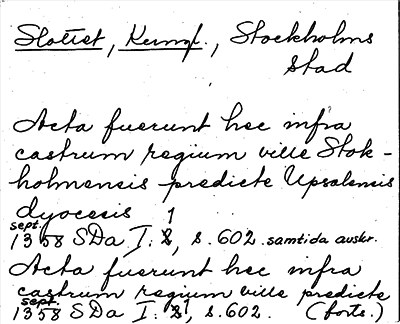 Slottet, Kungl., Stockholms
stad
Acta fuerunt hec infra
castrum regium ville Stok-
holmensis predicte Upsalensis
dyocesis 1
sept.
1358 SDa I: 2, s. 602. samtida avskr.
Acta fuerunt hec infra
castrum regium ville predicte
sept.
1358 SDa I: 1, s. 602. (forts.)